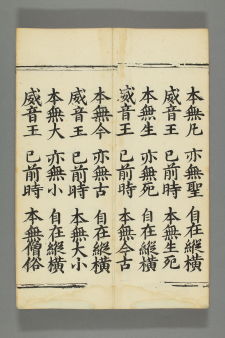 本無凡 亦無聖 自在縱橫
威音王 已前時 本無生死
本無生 亦無死 自在縱橫
威音王 已前時 本無今古
本無今 亦無古 自在縱橫
威音王 已前時 本無大小
本無大 亦無小 自在縱橫
威音王 已前時 本無僧俗